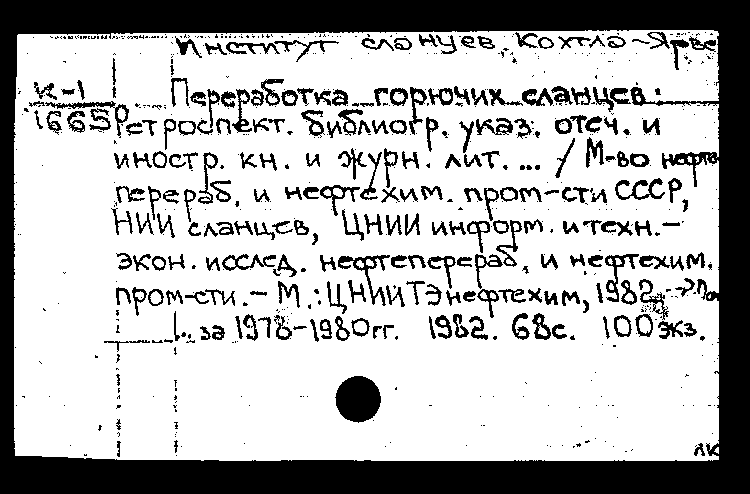 Институт сланцев. Кохтла-Ярве
К-1
1665
Переработка горючих сланцев:
Ретроспект. библиогр. указ. отеч. и
иностр. кн. и журн. лит. ... / М-во нефте
перераб. и нефтехим. пром-сти СССР,
НИИ сланцев, ЦНИИ информ. и техн.-
экон. исслед. нефтеперераб. и нефтехим.
пром-сти. - М.: ЦНИИТЭнефтехим, 1982. ->
... за 1978-1980гг. 1982. 68с. 100 экз.
лк